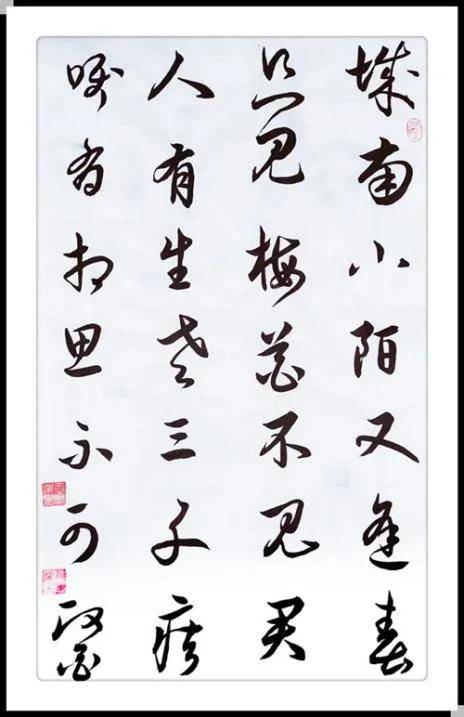 城南小陌又逢春
只见梅花不见君
人有生老三千疾
唯有相思不可醫